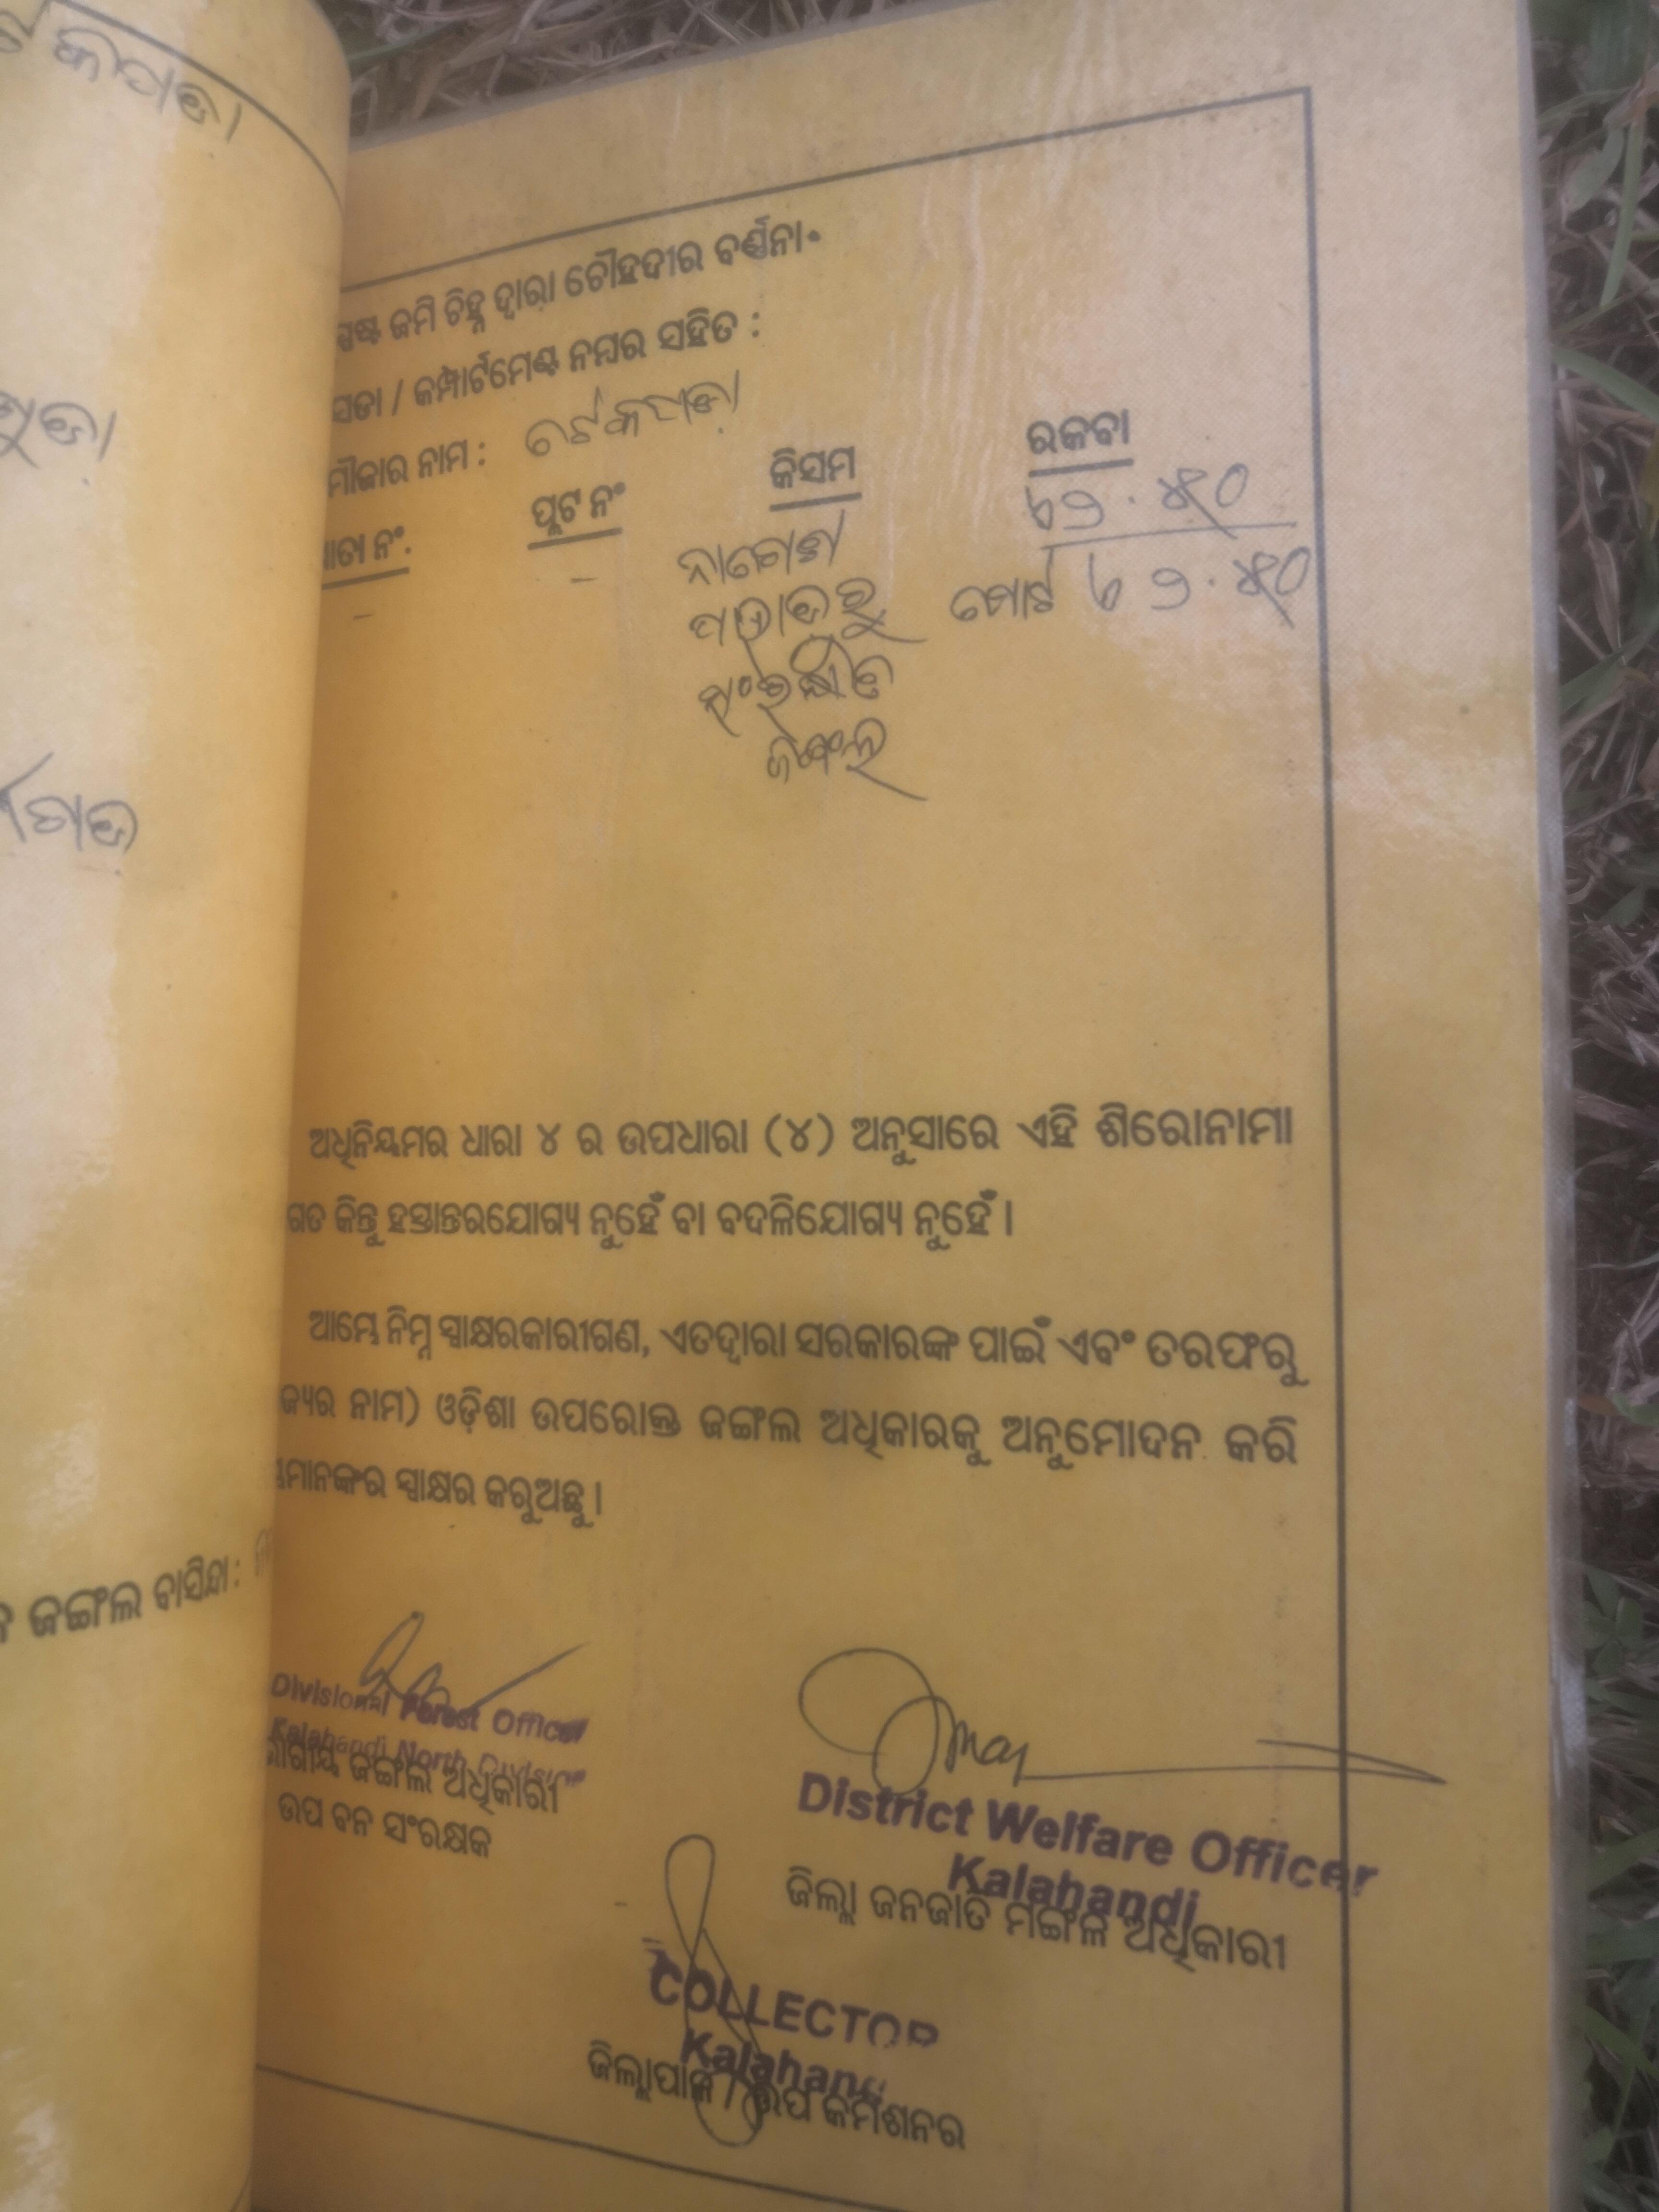 କପାଡା
ଗଡ
ଜଙ୍ଗଲ ବାସିନ୍ଦା :
ସ୍ପଷ୍ଟ ଜମି ଚିହ୍ନ ଦ୍ଵାରା ଚୌହଦୀର ବର୍ଣ୍ଣନା
ସଡା / କମ୍ପାର୍ଟମେଣ୍ଟ ନମ୍ବର ସହିତ :
ମୌଜାର ନାମ :
ଖାତା ନଂ. ପ୍ଲଟ ନଂ କିସମ ରକବା
– – ନାଗେଶ ୭୬.୫୦
ପାହାଡରୁ ମୋଟ ୭୬.୫୦
ସଂରକ୍ଷୀତ
ଜଙ୍ଗଲ
ଅଧିନିୟମର ଧାରା ୪ ର ଉପଧାରା (୪) ଅନୁସାରେ ଏହି ଶିରୋନାମା
ଗତ କିନ୍ତୁ ହସ୍ତାନ୍ତରଯୋଗ୍ୟ ନୁହେଁ ବା ବଦଳିଯୋଗ୍ୟ ନୁହେଁ ।
ଆମ୍ଭେ ନିମ୍ନ ସ୍ଵାକ୍ଷରକାରୀଗଣ, ଏତଦ୍ଵାରା ସରକାରଙ୍କ ପାଇଁ ଏବଂ ତରଫରୁ
ଜ୍ୟର ନାମ) ଓଡ଼ିଶା ଉପରୋକ୍ତ ଜଙ୍ଗଲ ଅଧିକାରକୁ ଅନୁମୋଦନ କରି
ମାନଙ୍କର ସ୍ଵାକ୍ଷର କରୁଅଛୁ ।
Divisional Forest Officer
Kalahandi North Division
ଭାଗୀୟ ଜଙ୍ଗଲ ଅଧିକାରୀ
ଉପ ବନ ସଂରକ୍ଷକ
District Welfare Officer
Kalahandi
ଜିଲ୍ଲା ଜନଜାତି ମଙ୍ଗଳ ଅଧିକାରୀ
COLLECTOR
Kalahand
ଜିଲ୍ଲାପାଳ / ଉପ କମିଶନର